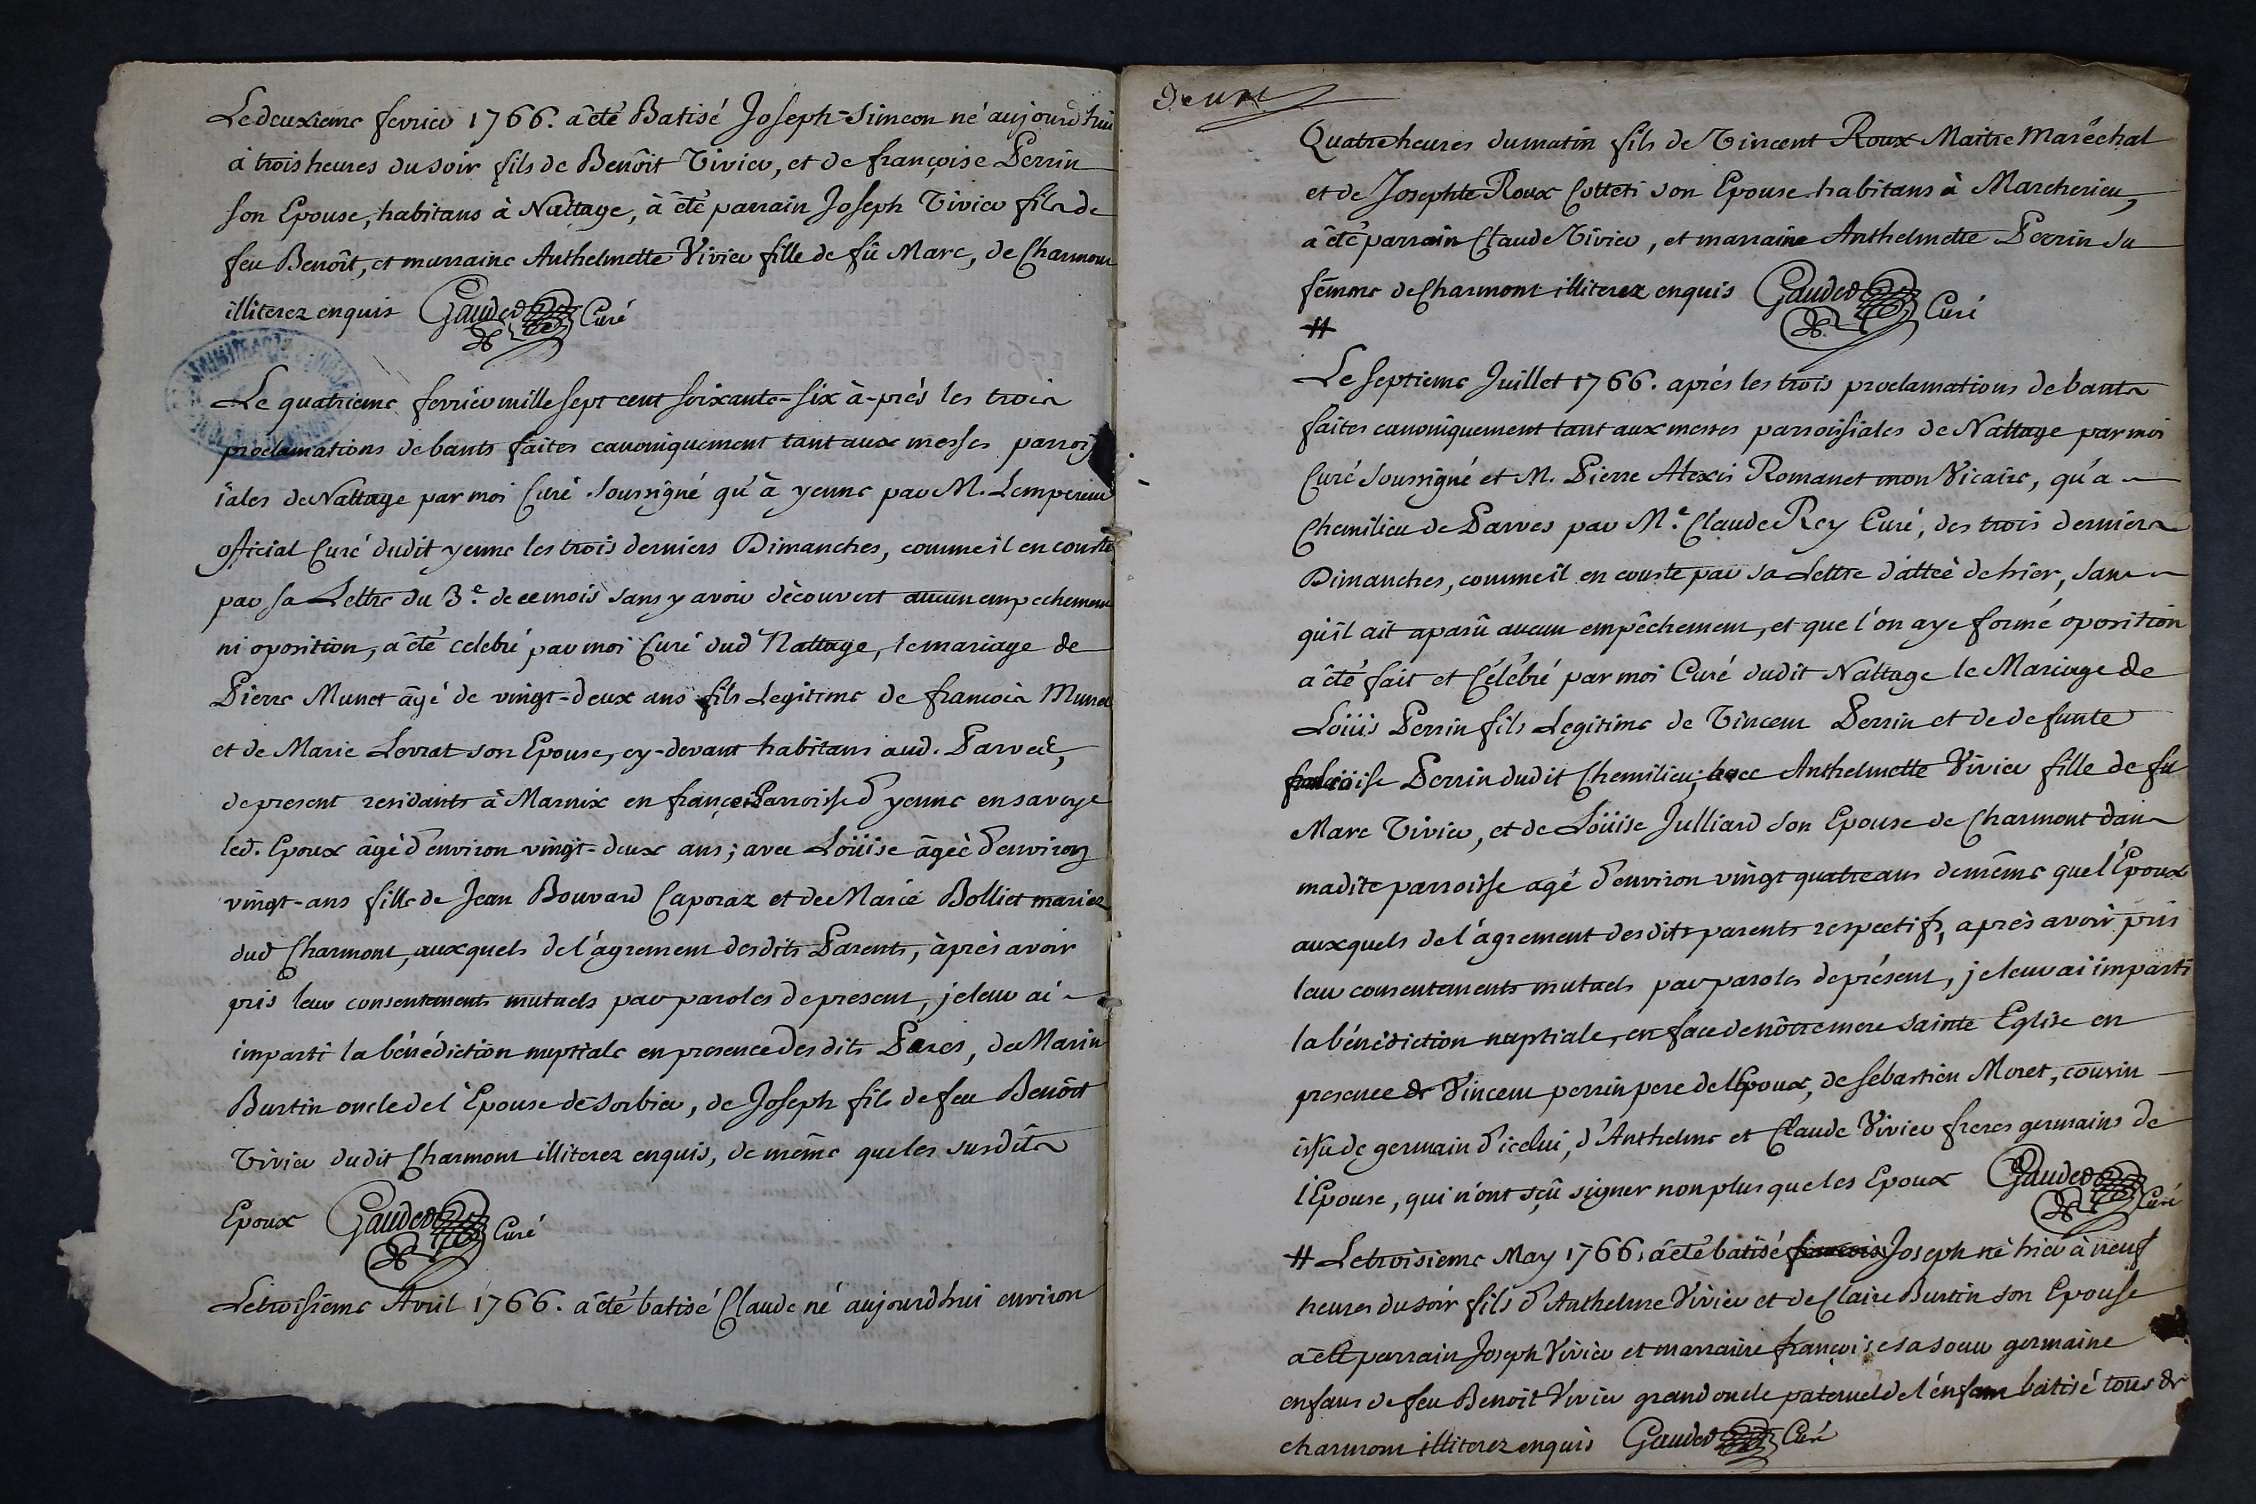 Le deuxieme fevrier 1766. a êté Batisé Joseph-Simeon né aujourd'hui
à trois heures du soir fils de Benôit Vivier, et de françoise Perrin
son Epouse, habitans à Nattage, à êté parrain Joseph Vivier fils de
feu Benoît, et marraine Anthelmette Vivier fille de fû Marc, de Charmont
illiterez enquis Gaudet Curé
Le quatrieme fevrier mille sept cent soixante-six à-prés les trois
proclamations de bants faites canoniquement tant aux messes parroiss
iales de Nattage par moi Curé soussigné qu'à yenne par M. Lempereur
official Curé dudit yenne les trois derniers Dimanches, comme il en conste
par sa Lettre du 3.e de ce mois sans y avoir dècouvert aucun empechement
ni oposition, a êté celebré par moi Curé dud Nattage, le mariage de
Pierre Munet âgé de vingt-deux ans fils Legitime de francois Munet
et de Marie Levrat son Epouse, cy-devant habitans aud. Parves,
de present residants à Marnix en france Parroisse d'yenne en savoye
led. Epoux âgè d'environ vingt-deux ans; avec Loüise âgèe d'environ
vingt-ans fille de Jean Bouvard Caporaz et de Marie Bolliet mariez
dud Charmont, auxquels de l'agrement desdits Parents, àprès avoir
pris leur consentements mutuels par paroles de present, je leur ai
imparti la bénédiction nuptiale en presence des dits Peres, de Marin
Burtin oncle de l'Epouse de sorbier, de Joseph fils de feu Benôit
Vivier dudit Charmont illiterez enquis, de même que les susdits
Epoux Gaudet Curé
Le troisieme Avril 1766. a êté batisé Claude né aujourd'hui environ
Deux
Quatre heures du matin fils de Vincent Roux Maitre Maréchal
et de Josephte Roux Cotteti son Epouse habitans à Marcherieu,
a êté parrain Claude Vivier, et marraine Anthelmette Perrin sa
femme de Charmont illiterez enquis Gaudet Curé
#
Le septieme Juillet 1766. aprés les trois proclamations de bants
faites canoniquement tant aux messes parroissiales de Nattage par moi
Curé soussigné et M. Pierre Alexis Romanet mon Vicaire, qu'a
Chemilieu de Parves par M.e Claude Rey Curé, des trois derniers
Dimanches, comme il en conste par sa Lettre dattèe de hier, sans
qu'il ait aparû aucun empêchement, et que l'on aye formé oposition
a êté fait et Célébré par moi Curé dudit Nattage le Mariage de
Loüis Perrin fils Legitime de Vincent Perrin et de defunte
Perrin dudit Chemilieu; avec Anthelmette Vivier fille de fû
Marc Vivier, et de Loüise Julliard son Epouse de Charmont dans
madite parroisse agé d'environ vingt quatre ans de même que l'Epoux
auxquels de l'agrement desdits parents respectifs, après avoir pris
leur consentements mutuels par paroles de présent, je leur ai imparti
la bénédiction nuptiale, en face de nôtre mere sainte Eglise en
presence de Vincent perrin pere de l'Epoux, de sebastien Moret, cousin
issu de germain d'icelui, d'Anthelme et Claude Vivier freres germains de
l'Epouse, qui n'ont sçû signer non plus que les Epoux Gaudet Curé
# Le troisieme May 1766. a êté batisé françois Joseph né hier à neuf
heures du soir fils d'Anthelme Vivier et de Claire Burtin son Epouse
a êté parrain Joseph Vivier et marraine françoise sa soeur germaine
enfans de feu Benoit Vivier grand oncle paternel de l'enfant batisé tous de
charmont illiterez enquis Gaudet Curé